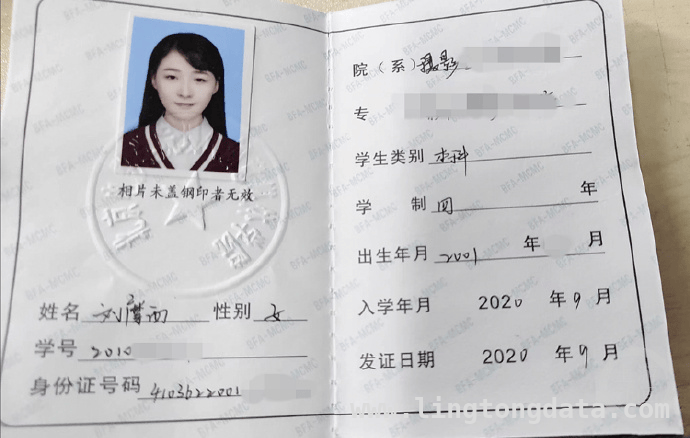 BFA-MCMC
相片未盖钢印者无效
北京
姓名 刘 性别 女
学号 2010
身份证号码 4103622001
院（系）摄影
专
学生类别 本科
学 制 四 年
出生年月 2001 年 月
入学年月 2020 年 9 月
发证日期 2020 年 9 月
www.lingtongdata.com